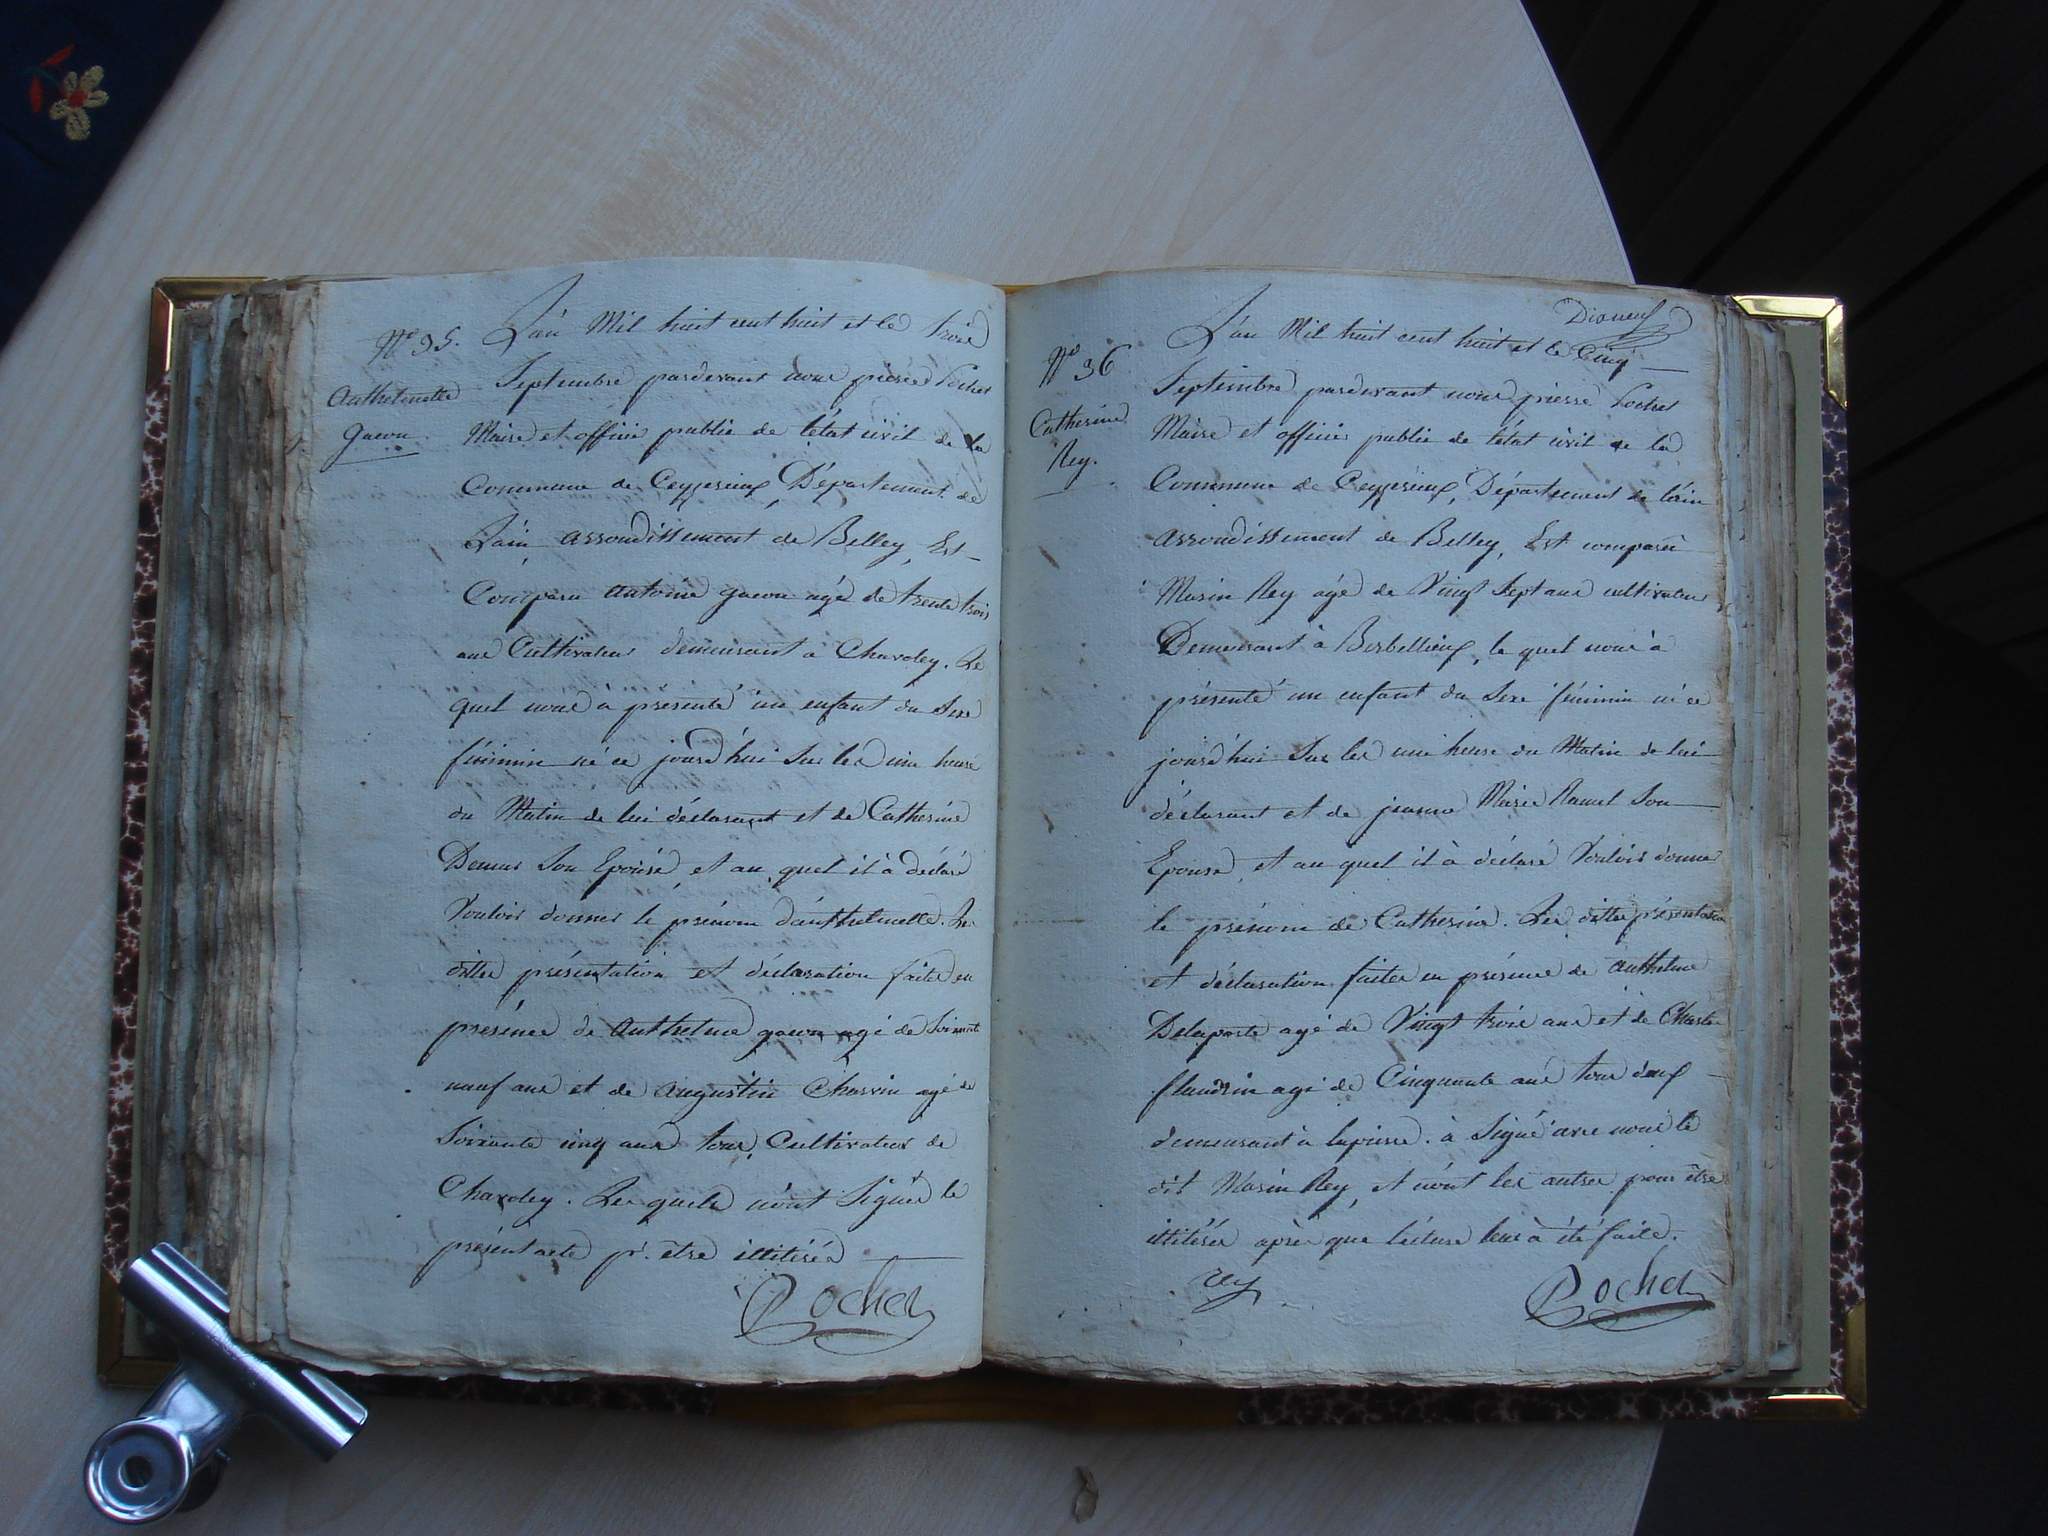 N° 35.
Anthelmette
Gacon
L'an Mil huit cent huit et le trois
Septembre pardevant nous pierre Pochet
Maire et officier public de l'état civil de la
Commune de Ceyzerieux, Département de
L'ain arrondissement de Belley, Est
Comparu antoine gacon agé de trente trois
ans Cultivateur demeurant a Chavoley. Le
quel nous à présenté un enfant du Sexe
féminin né ce jourd'hui Sur les une heure
du Matin de lui déclarant et de Catherine
Son Epouse, et au quel il à déclaré
Vouloir donner le prénom d'anthelmette. Les
dittes présentation et déclaration faites en
présence de Anthelme gacon agé de Soixante
neuf ans et de augustin Charvin agé de
Soixante cinq ans tous Cultivateur de
Chavoley. Les quels n'ont Signés le
présent acte pr. être illitérés
Pochet
N° 36
Catherine
Rey.
L'an Mil huit cent huit et le Cinq
Septembre pardevant nous pierre Pochet
Maire et officier public de l'état civil de la
Commune de Ceyzerieux, Département de l'ain
arrondissement de Belley, Est comparu
Marin Rey agé de Vingt Sept ans cultivateur
Demeurant à Berbellieux, le quel nous à
présenté un enfant du Sexe féminin né ce
jourd'hui Sur les une heure du Matin de lui
déclarant et de jeanne Marie Ramel Son
Epouse, et au quel il à déclaré Vouloir donner
le prénom de Catherine. Les dittes présentation
et déclaration faites en présence de anthelme
Delaporte agé de Vingt trois ans et de Charles
flandrin agé de Cinquante ans tous deux
demeurant à lapierre. à Signé avec nous le
dit Marin Rey, et n'ont les autres pour être
illitérés après que lecture leur à été faite.
Rey
Pochet